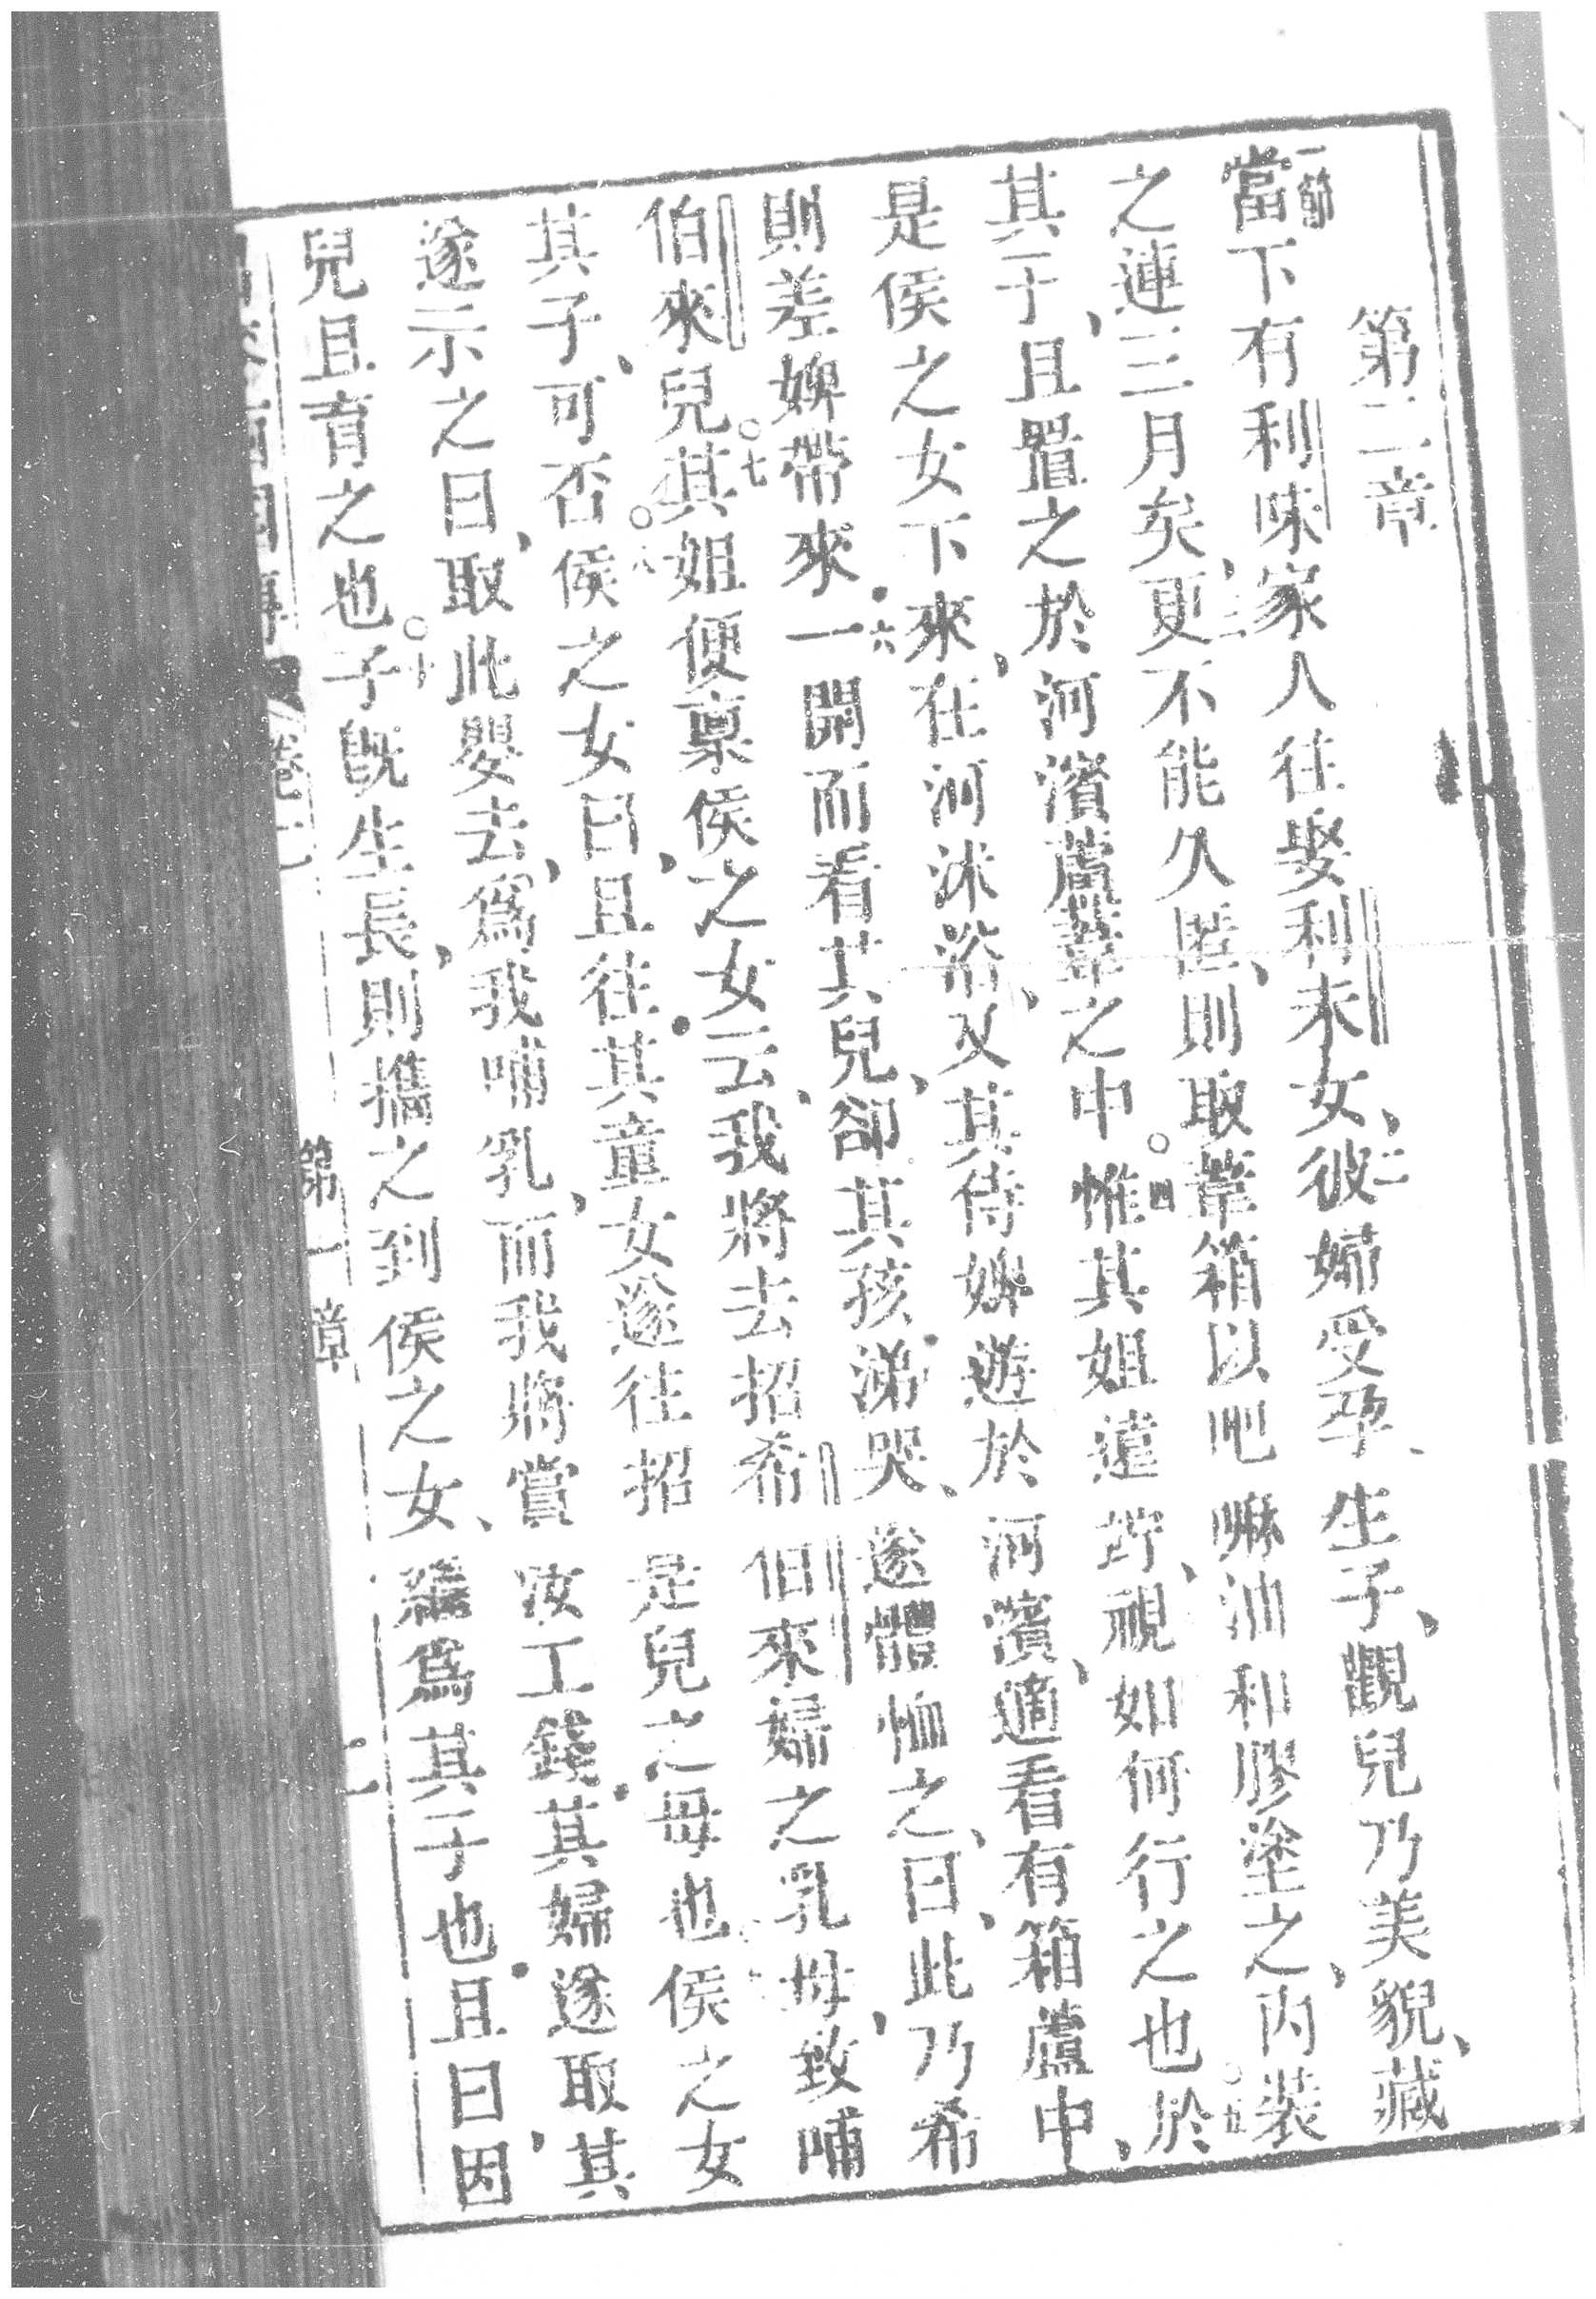 第二章
一節當下有利味家人往娶利未女、二彼婦受孕、生子、觀兒乃美貌、藏
之連三月矣、三更不能久匿、則取葦箱以吧嘛油和膠塗之、內裝
其子、且置之於河濱蘆葦之中。四惟其姐遠竚、視如何行之也。五於
是侯之女下來、在河沐浴、又其侍婢遊於河濱、適看有箱蘆中、
則差婢帶來。六一開而看其兒、卻其孩涕哭、遂體恤之、曰、此乃希
伯來兒。七其姐便稟侯之女云、我將去招希伯來婦之乳母、致哺
其子、可否。八侯之女曰、且往。其童女遂往招是兒之母也。侯之女
遂示之曰、取此嬰去、為我哺乳、而我將賞汝工錢。其婦遂取其
兒且育之也。十子既生長、則攜之到侯之女、繼為其子也。且曰、因
卷二 第一章 二